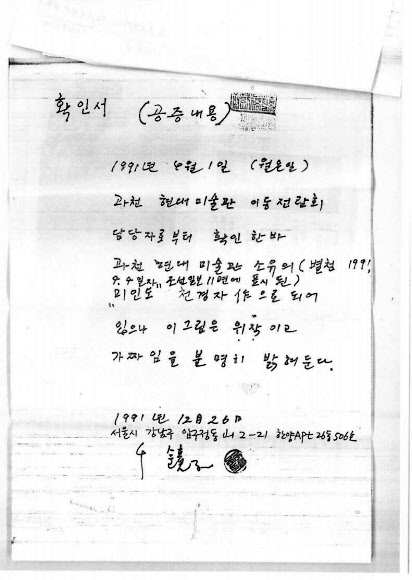 확인서 (공증내용)
1991년 4월 1일 (월요일)
과천 현대 미술관 이동전람회
담당자로부터 확인한바
과천 현대 미술관 소유의 (별첨 1991,
4.4일자" 조선일보 11면에 표시된)
"미인도" 천경자 作으로 되어
있으나 이그림은 위작이고
가짜임을 분명히 밝혀둔다.
1991년 12月 26日
서울시 강남구 압구정동 山 2-21 한양APt 26동 506호